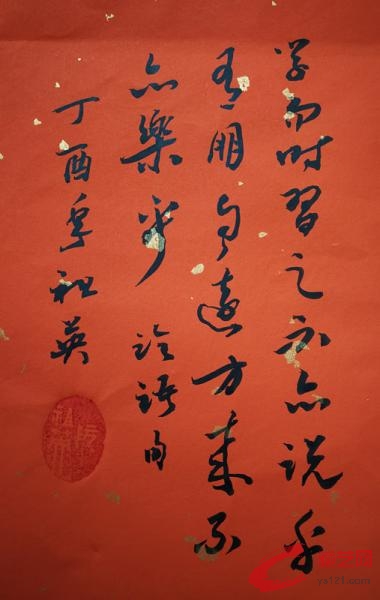 学而时習之不亦说乎
有朋自遠方来不
亦樂乎 论语句
丁酉年英
ys121.com